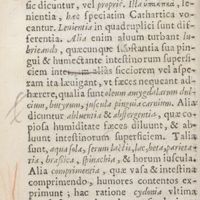 sic dicuntur, vel propriè. Illa humana, le-
nientia, hæc speciatim Cathartica vo-
cantur. Lenientia in quadruplici sunt dif-
ferentia. Alia enim alvum turbant lu-
bricando, quæcunque substantia sua pin-
gui & humectante intestinorum superfi-
ciem alias sicciorem vel asper-
am ita lævigant, ut fæces nequeant ad-
hærere, qualia sunt oleum amygdalarum dul-
cium, butyrum, juscula pinguia carnium. Aliæ
dicuntur abluentia & abstergentia, quæ co-
piosa humiditate fæces diluunt, & al-
luunt intestinorum superficiem. Talia
sunt, aqua sola, serum lactis, lac, beta, parieta-
ria, brassica, spinachia, & horum juscula.
Alia comprimentia, quæ vasa & intestina
comprimendo, humores contentos ex-
primunt; hac ratione cydonia ultima